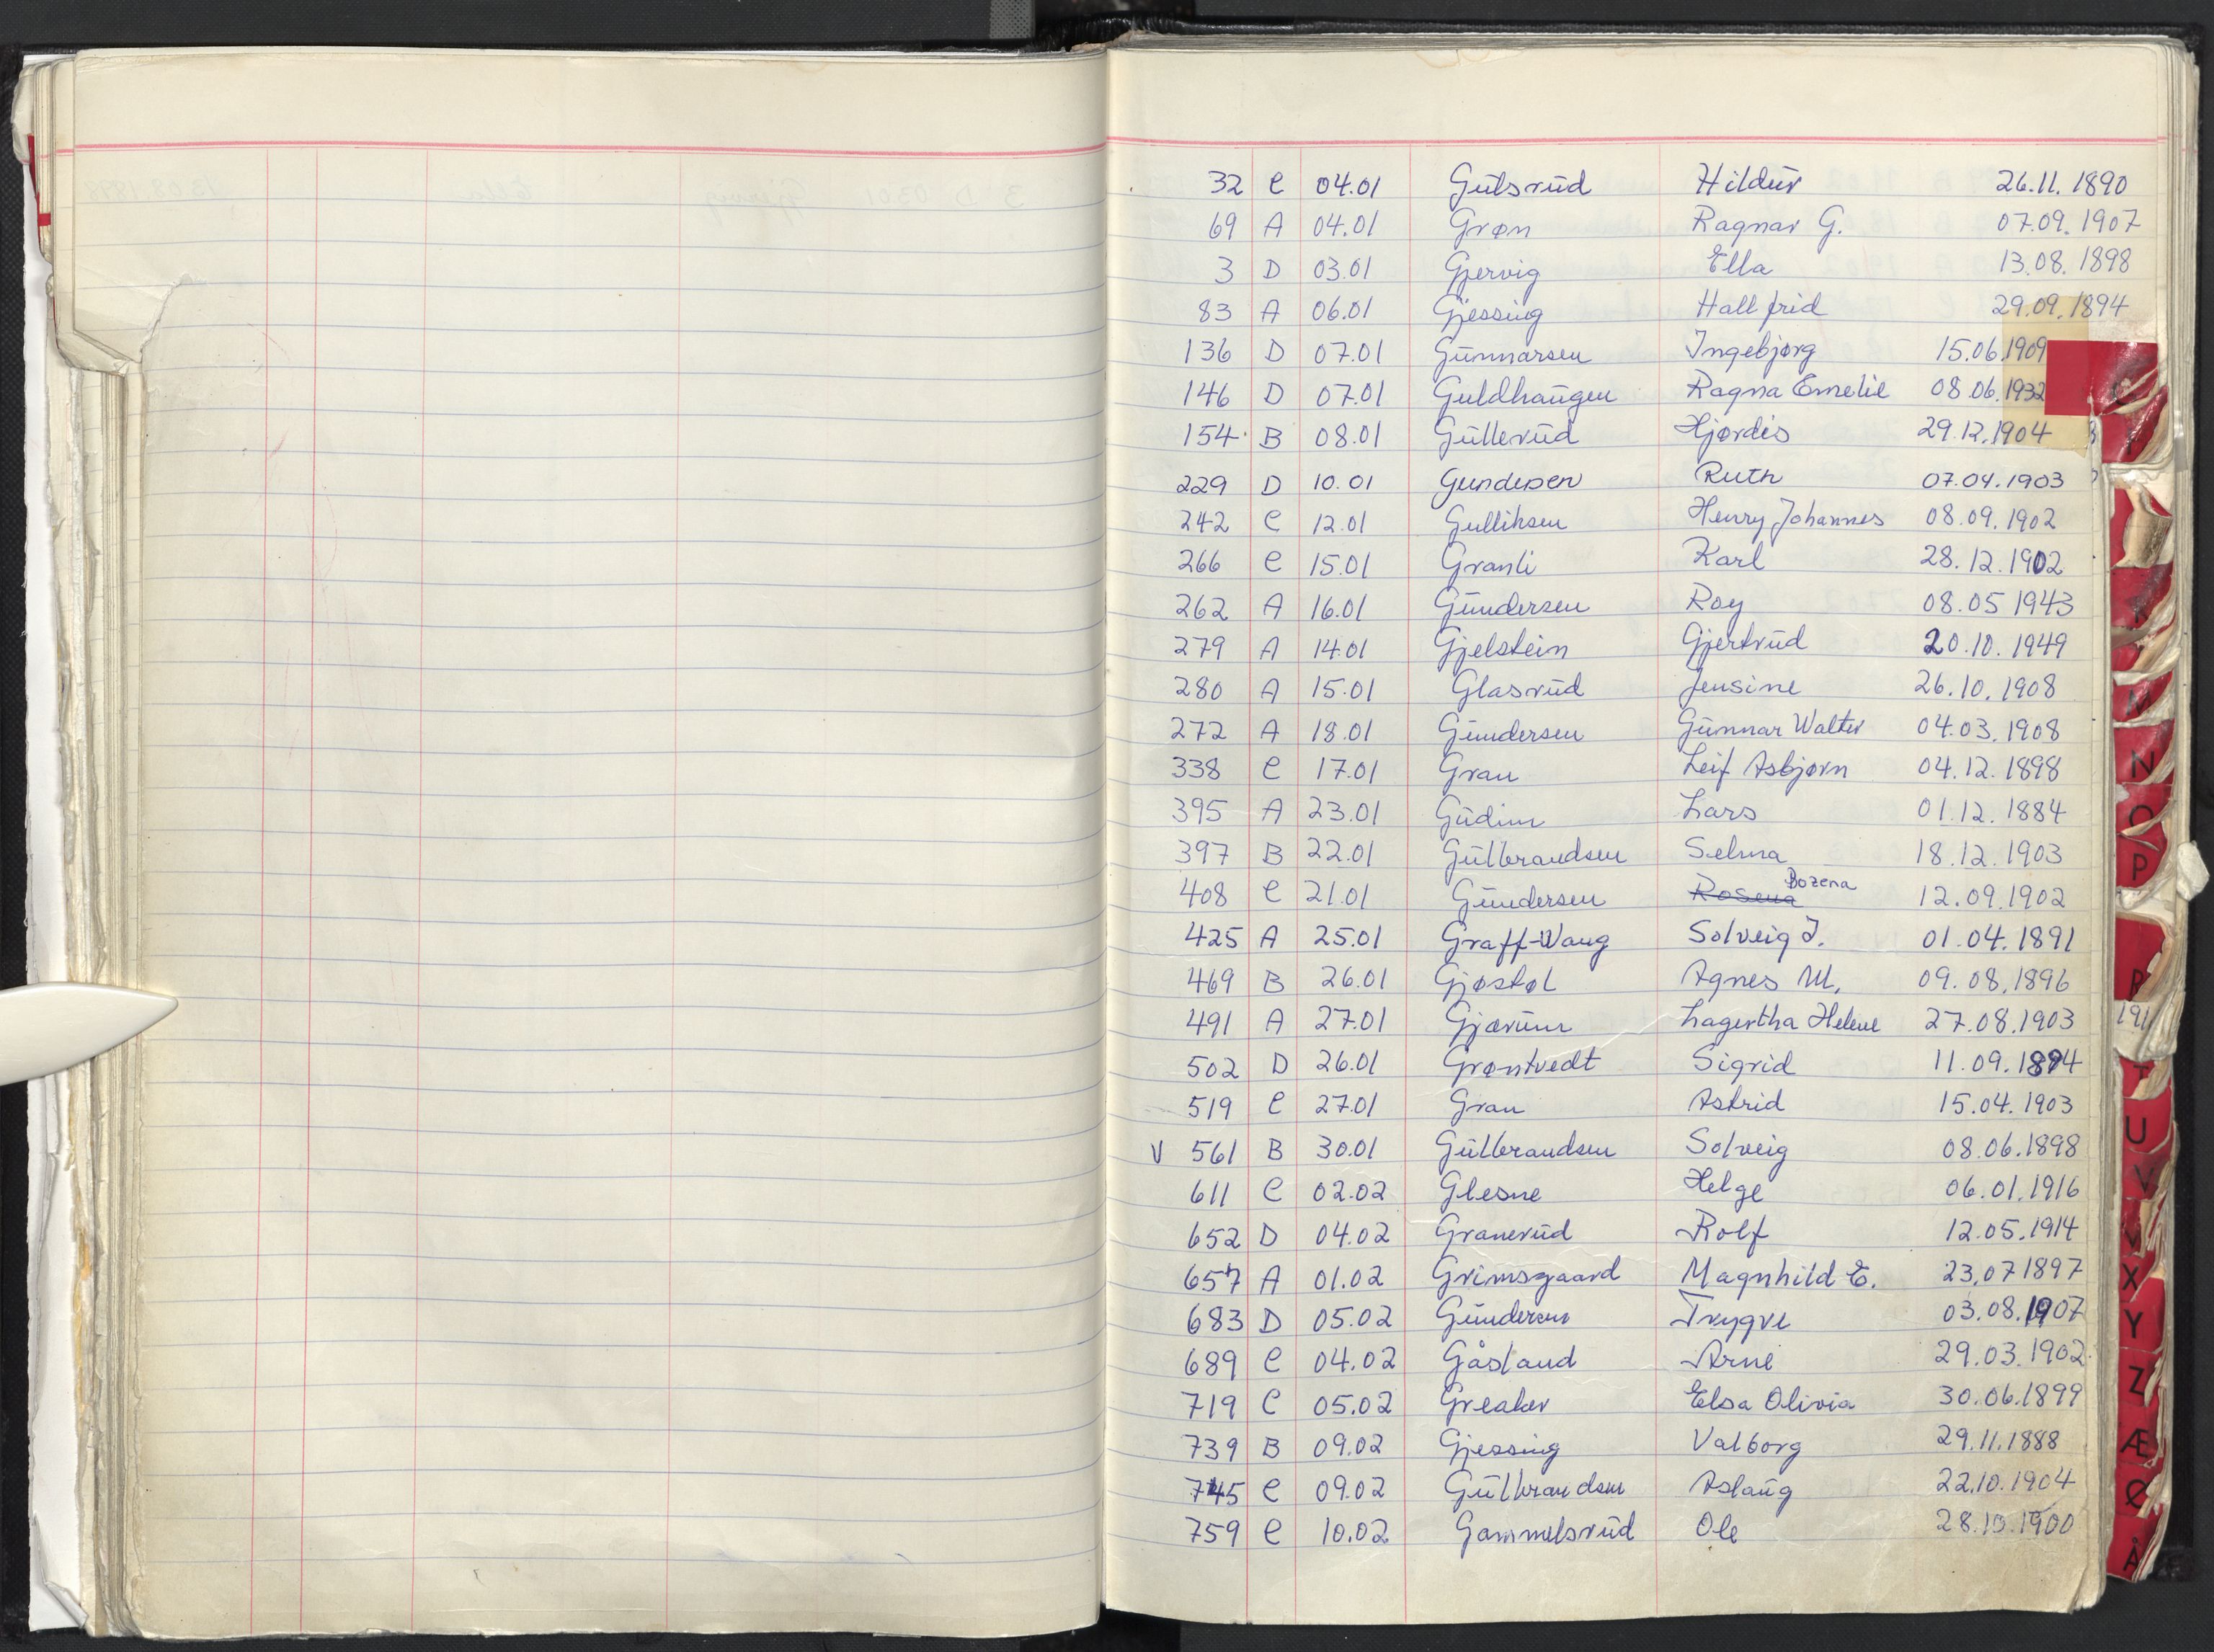 32 C 04.01 Gulsrud Hildur 26.11.1890
69 A 04.01 Grøn Ragnar G. 07.09.1907
3 D 03.01 Gjervig Ella 13.08.1898
83 A 06.01 Gjessing Hallfrid 29.09.1894
136 D 07.01 Gunnarsen Ingebjørg 15.06.1909
146 D 07.01 Guldhaugen Ragna Emelie 08.06.1932
154 B 08.01 Gullerud Hjørdis 29.12.1904
229 D 10.01 Gundersen Ruth 07.04.1903
242 C 12.01 Gulliksen Henry Johannes 08.09.1902
266 C 15.01 Granli Karl 28.12.1902
262 A 16.01 Gundersen Roy 08.05 1943
279 A 14.01 Gjelstein Gjertrud 20.10.1949
280 A 15.01 Glasrud Jensine 26.10.1908
272 A 18.01 Gundersen Gunnar Walter 04.03.1908
338 C 17.01 Gran Leif Asbjørn 04.12.1898
395 A 23.01 Gudim Lars 01.12.1884
397 B 22.01 Gulbrandsen Selma 18.12.1903
408 C 21.01 Gundersen Rosena Bozena 12.09.1902
425 A 25.01 Graff-Wang Solveig J. 01.04.1891
469 B 26.01 Gjøstøl Agnes M. 09.08.1896
491 A 27.01 Gjærum Lagertha Helene 27.08.1903
502 D 26.01 Grøntvedt Sigrid 11.09.1894
519 C 27.01 Gran Astrid 15.04.1903
V 561 B 30.01 Gulbrandsen Solveig 08.06.1898
611 C 02.02 Glesne Helge 06.01.1916
652 D 04.02 Granerud Rolf 12.05.1914
657 A 01.02 Grimsgaard Magnhild E. 23.07 1897
683 D 05.02 Gundersen Trygve 03.08.1907
689 C 04.02 Gåsland Arne 29.03.1902
719 C 05.02 Greaker Elsa Olivia 30.06.1899
739 B 09.02 Gjessing Valborg 29.11.1888
745 C 09.02 Gulbrandsen Aslaug 22.10.1904
759 C 10.02 Gammelsrud Ole 28.10.1900
G
N
O
P
R
191
T
U
V
X
Y
Z
Æ
Ø
Å